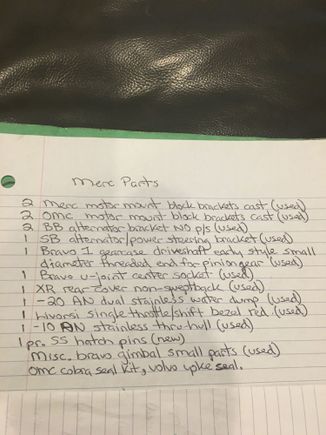 Merc Parts
2 Merc motor mount block brackets cast (used)
2 OMC motor mount block brackets cast (used)
2 BB alternator bracket NO p/s (used)
1 SB alternator/power steering bracket (used)
1 Bravo I gearcase driveshaft early style small
diameter threaded end for pinion gear (used)
1 Bravo u-joint center socket (used)
1 XR rear cover non-sweptback (used)
1 -20 AN dual stainless water dump (used)
1 Livorsi single throttle/shift bezel red (used)
1 -10 AN stainless thru-hull (used)
1 pr. SS hatch pins (new)
Misc. bravo gimbal small parts (used)
OMC cobra seal kit, volvo seal.